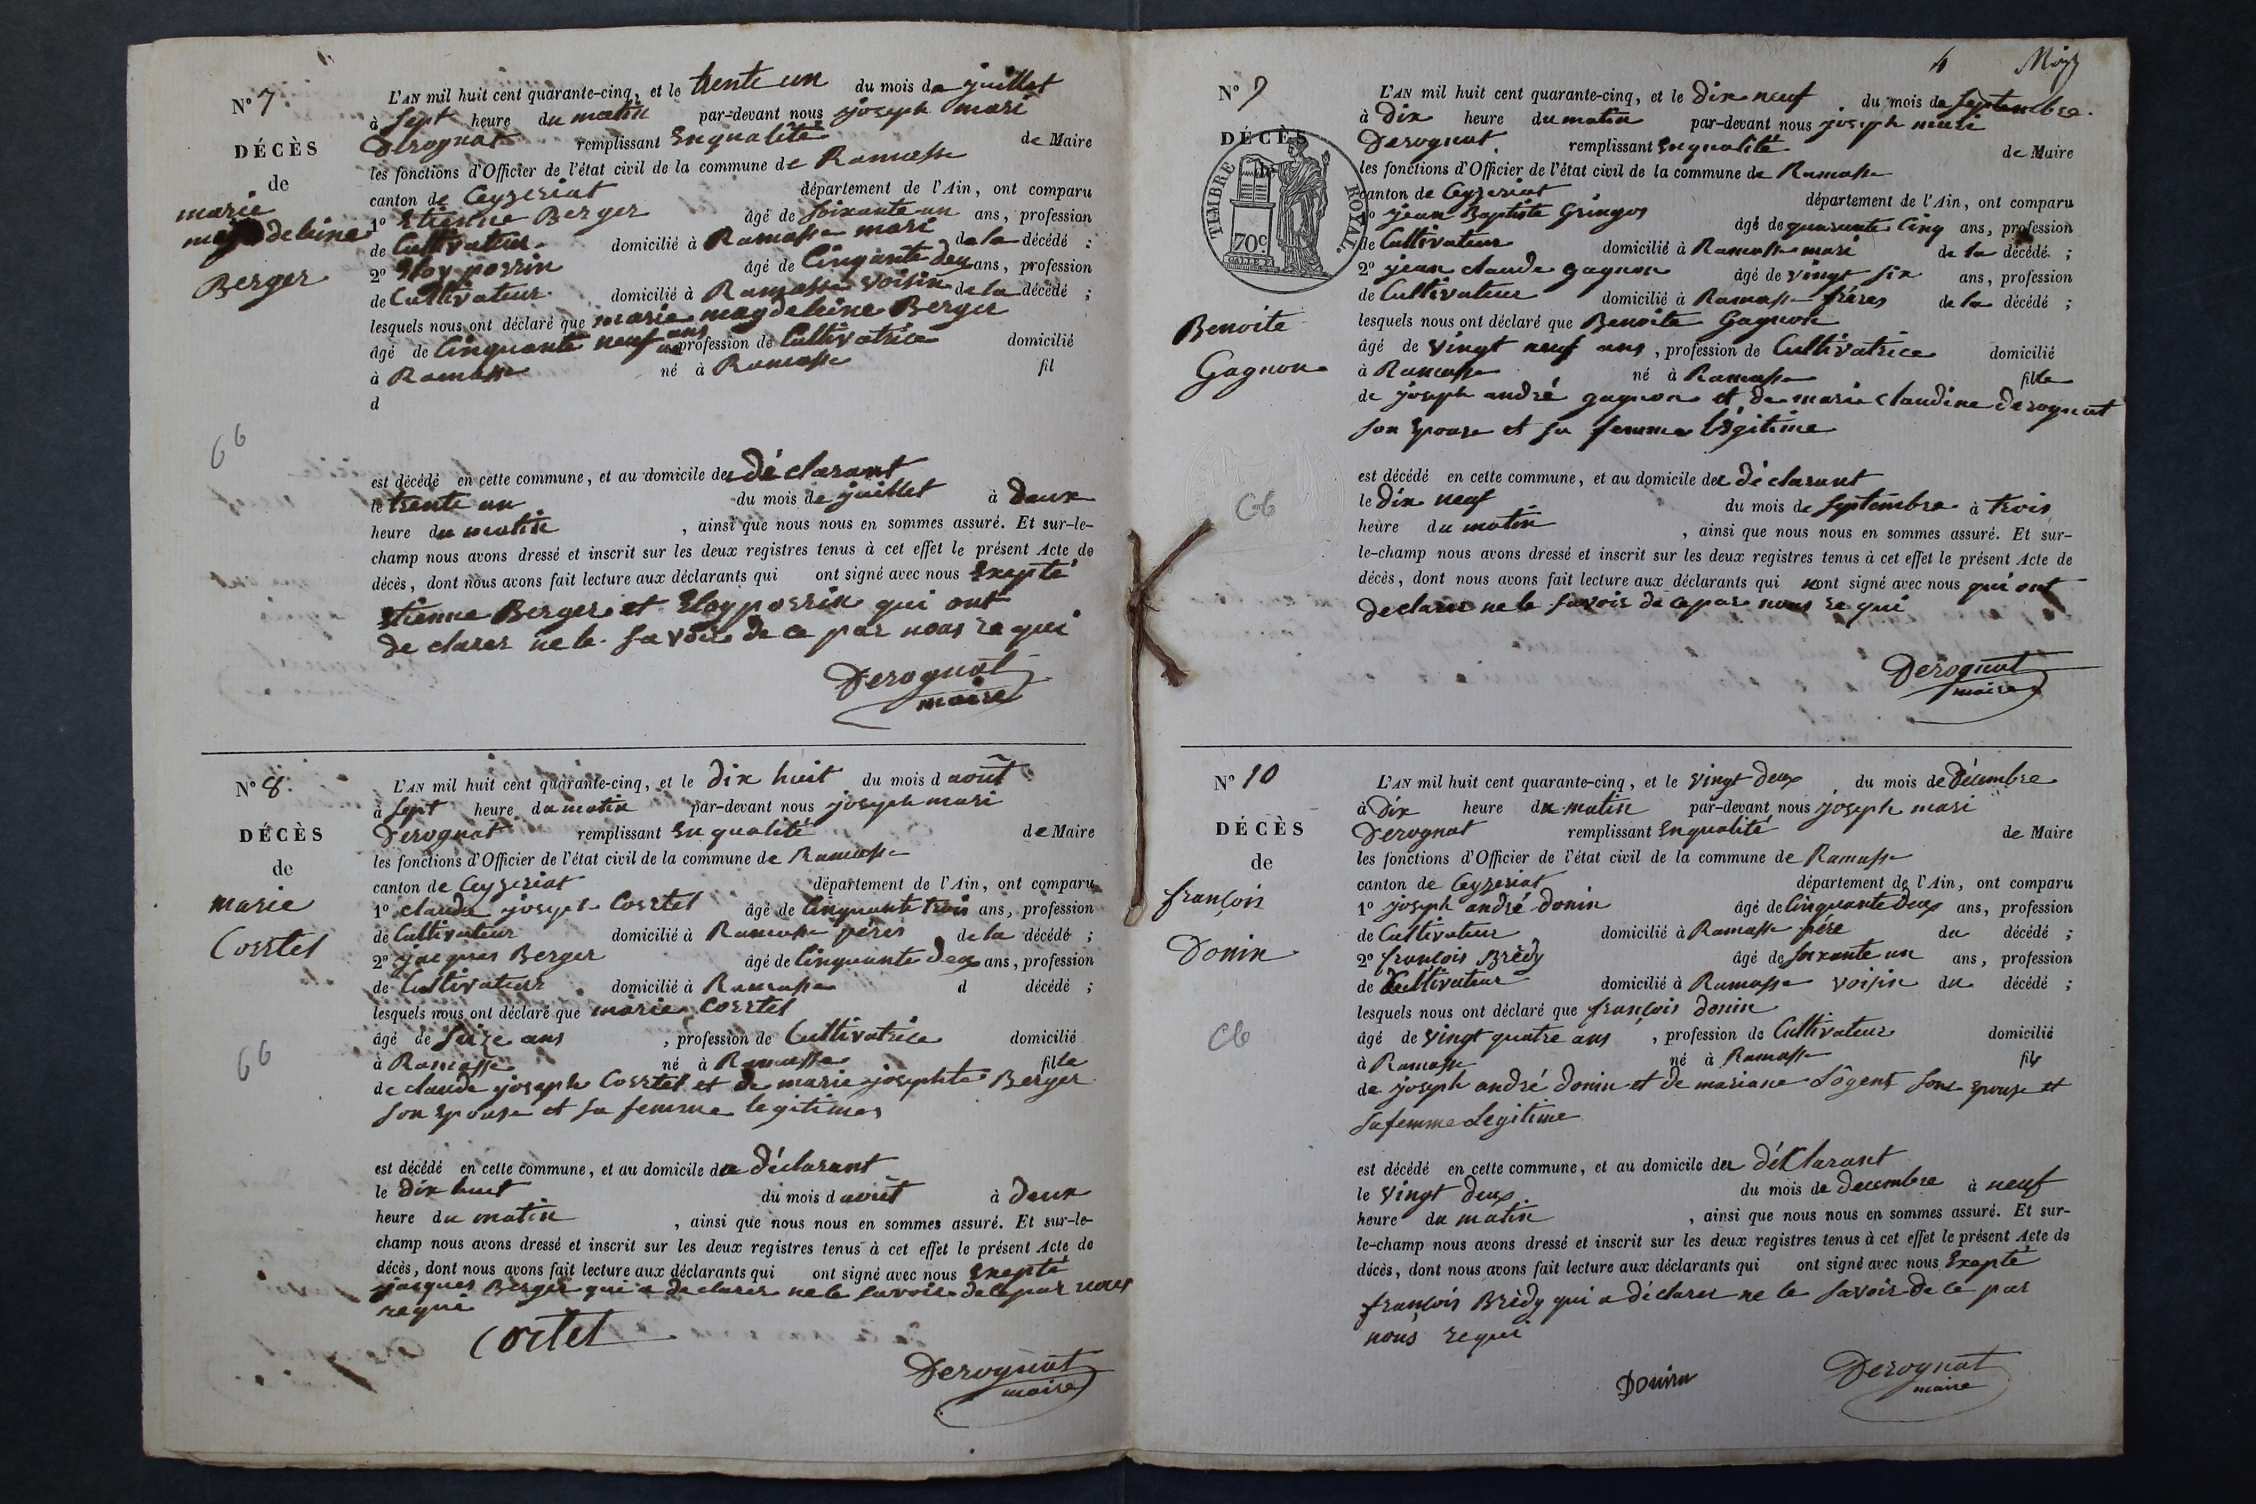 N° 7
DÉCÈS
de
marie
magdeleine
Berger
66
L'AN mil huit cent quarante-cinq, et le trente un du mois de juillet
à sept heure du matin par-devant nous joseph mari
Derognat remplissant Enqualité de Maire
les fonctions d'Officier de l'état civil de la commune de Ramasse
canton de Ceyzeriat département de l'Ain, ont comparu
1° Etienne Berger âgé de soixante un ans, profession
de Cultivateur domicilié à Ramasse mari de la décédé ;
2° Eloy perrin âgé de Cinquante deux ans, profession
de Cultivateur domicilié à Ramasse voisin de la décédé ;
lesquels nous ont déclaré que marie magdeleine Berger
âgé de Cinquante neuf ans profession de Cultivatrice domicilié
à Ramasse né à Ramasse fil
d
est décédé en cette commune, et au domicile du déclarant
le trente un du mois de juillet à Deux
heure du matin , ainsi que nous nous en sommes assuré. Et sur-le-
champ nous avons dressé et inscrit sur les deux registres tenus à cet effet le présent Acte de
décès, dont nous avons fait lecture aux déclarants qui ont signé avec nous Exepté
Etienne Berger et Eloy perrin qui ont
de clarer ne le savoir de ce par nous re qui
Derognat
maire
N° 8
DÉCÈS
de
marie
Cortel
66
L'AN mil huit cent quarante-cinq, et le dix huit du mois d août
à sept heure du matin par-devant nous joseph mari
Derognat remplissant En qualité de Maire
les fonctions d'Officier de l'état civil de la commune de Ramasse
canton de Ceyzeriat département de l'Ain, ont comparu
1° claude joseph Cortel âgé de Cinquante trois ans, profession
de Cultivateur domicilié à Ramasse pères de la décédé ;
2° jacques Berger âgé de Cinquante deux ans, profession
de Cultivateur domicilié à Ramasse d décédé ;
lesquels nous ont déclaré que marie Cortel
âgé de seize ans , profession de Cultivatrice domicilié
à Ramasse né à Ramasse fille
de claude joseph Cortel et de marie josephte Berger
son Epouse et sa femme legitimes
est décédé en cette commune, et au domicile du déclarant
le dix huit du mois d août à deux
heure du matin , ainsi que nous nous en sommes assuré. Et sur-le-
champ nous avons dressé et inscrit sur les deux registres tenus à cet effet le présent Acte de
décès, dont nous avons fait lecture aux déclarants qui ont signé avec nous Exepté
jacques Berger qui a declarer ne le savoir de ce par nous
requi
Cortel
Derognat
maire
4
N° 9
DÉCÈS
TIMBRE ROYAL.
70c
Benoite
Gagnon
L'AN mil huit cent quarante-cinq, et le Dix neuf du mois de septembre
à Dix heure du matin par-devant nous joseph mari
Derognat remplissant Enqualité de Maire
les fonctions d'Officier de l'état civil de la commune de Ramasse
canton de Ceyzeriat département de l'Ain, ont comparu
1° jean Baptiste Gringos âgé de quarante Cinq ans, profession
de Cultivateur domicilié à Ramasse mari de la décédé ;
2° jean claude gagnon âgé de vingt six ans, profession
de Cultivateur domicilié à Ramasse frères de la décédé ;
lesquels nous ont déclaré que Benoite Gagnon
âgé de vingt neuf ans , profession de Cultivatrice domicilié
à Ramasse né à Ramasse fille
de joseph andré gagnon et de marie claudine derognat
son Epouse et sa femme légitime
est décédé en cette commune, et au domicile du déclarant
le dix neuf du mois de septembre à trois
heure du matin , ainsi que nous nous en sommes assuré. Et sur-
le-champ nous avons dressé et inscrit sur les deux registres tenus à cet effet le présent Acte de
décès, dont nous avons fait lecture aux déclarants qui nont signé avec nous qui ont
declarer ne le savoir de ce par nous re qui
Derognat
maire
N° 10
DÉCÈS
de
françois
Donin
L'AN mil huit cent quarante-cinq, et le vingt deux du mois de Décembre
à Dix heure du matin par-devant nous joseph mari
Derognat remplissant Enqualité de Maire
les fonctions d'Officier de l'état civil de la commune de Ramasse
canton de Ceyzeriat département de l'Ain, ont comparu
1° joseph andré donin âgé de Cinquante deux ans, profession
de Cultivateur domicilié à Ramasse père du décédé ;
2° françois Brèdy âgé de soixante un ans, profession
de Cultivateur domicilié à Ramasse voisin du décédé ;
lesquels nous ont déclaré que françois donin
âgé de vingt quatre ans , profession de Cultivateur domicilié
à Ramasse né à Ramasse fils
de joseph andré donin et de mariane Lôgent son Epouse et
sa femme Legitime
est décédé en cette commune, et au domicile du déclarant
le vingt deux du mois de decembre à neuf
heure du matin , ainsi que nous nous en sommes assuré. Et sur-
le-champ nous avons dressé et inscrit sur les deux registres tenus à cet effet le présent Acte de
décès, dont nous avons fait lecture aux déclarants qui ont signé avec nous Exepté
françois Brèdy qui a déclarer ne le savoir de ce par
nous requi
Donin
Derognat
maire